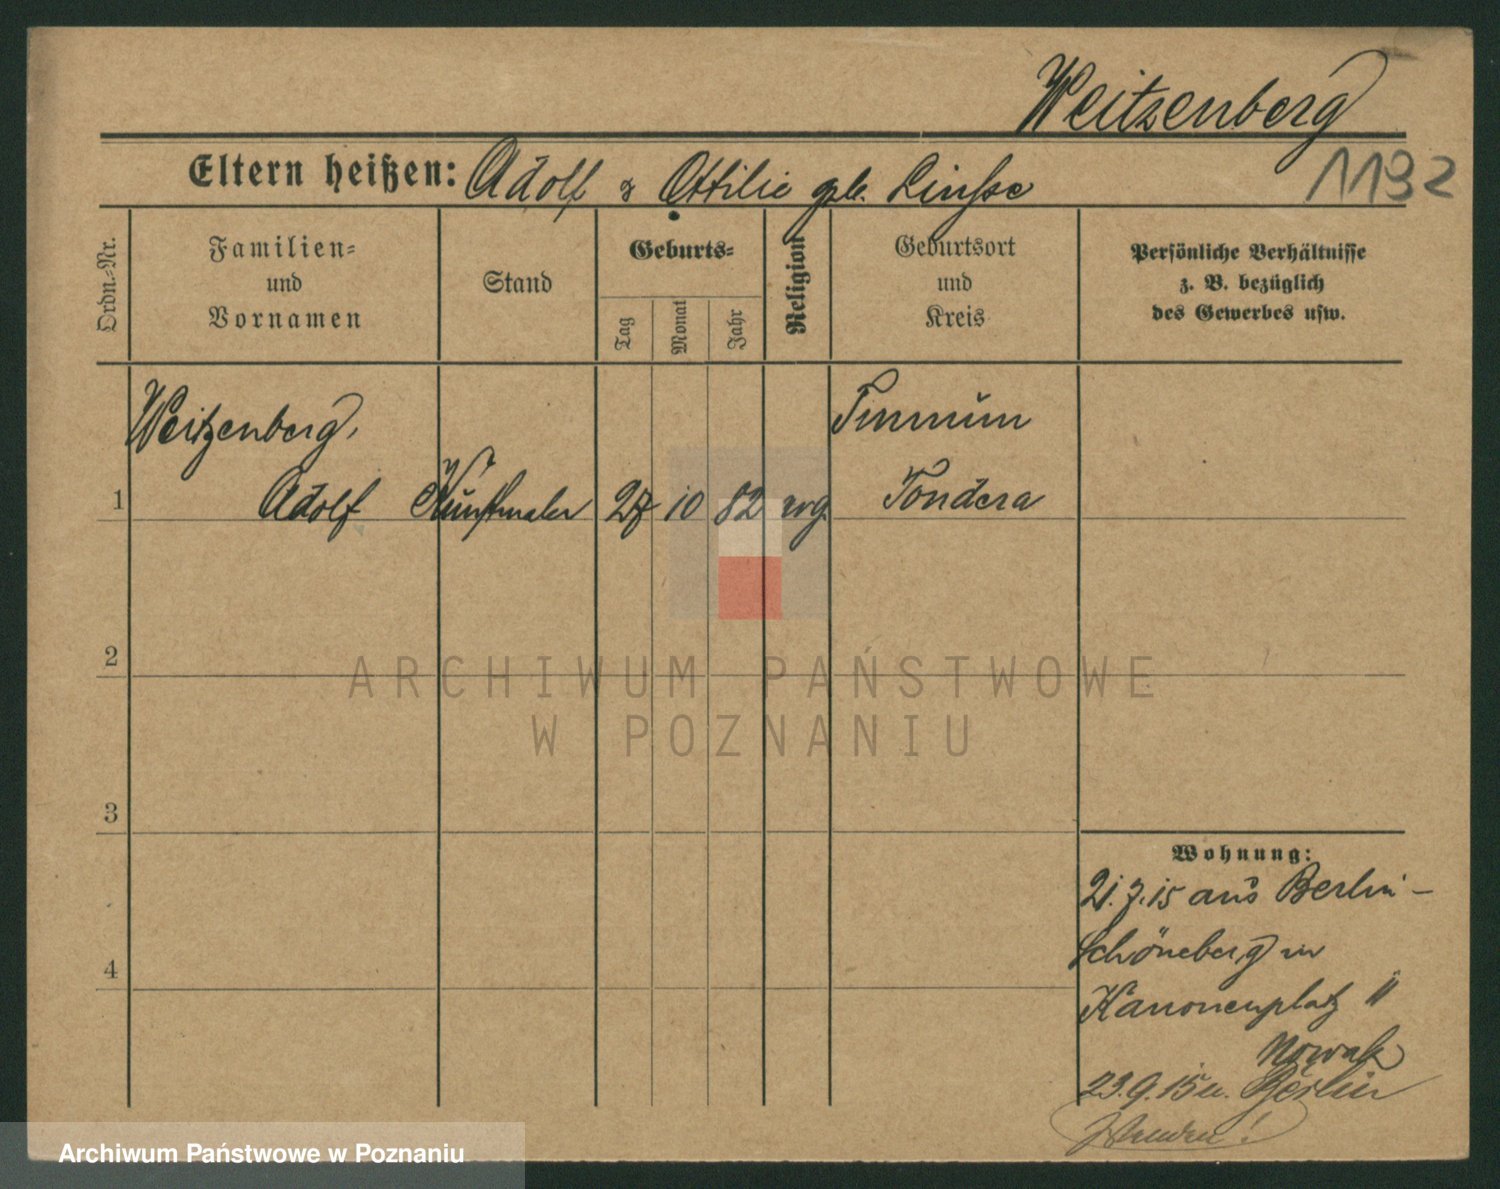 Weitzenberg
1192
Eltern heißen: Adolf & Ottilie geb. Linsse
Ordn.-Nr.
Familien-
und
Vornamen
Stand
Geburts-
Tag
Monat
Jahr
Religion
Geburtsort
und
Kreis
Persönliche Verhältnisse
z. B. bezüglich
des Gewerbes usw.
Weitzenberg,
Tinnum
1 Adolf Kunstmaler 27 10 82 evg Tondera
2
ARCHIWUM PAŃSTWOWE
W POZNANIU
3
Wohnung:
21.7.15 aus Berlin-
Schöneberg in
4
Kanonenplatz 11
Nowak
23.9.15 n. Berlin
Wenden!
Archiwum Państwowe w Poznaniu